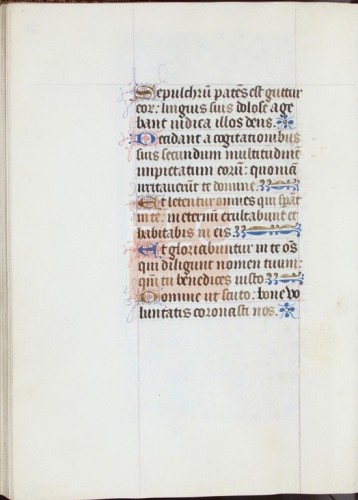 Sepulchrū patēs est guttur
eor: linguis suis dolose age
bant iudica illos deus.
Decidant a cogitationibus
suis secundum multitudinē
impietatum eorū: quoniā
irritauerūt te domine.
Et letentur omnes qui sperāt
in te: in eternū exultabunt et
habitabis in eis.
Et gloriabuntur in te oēs
qui diligunt nomen tuum:
qm̄ tu benedices iusto.
Domine ut scuto: bone vo
luntatis coronasti nos.